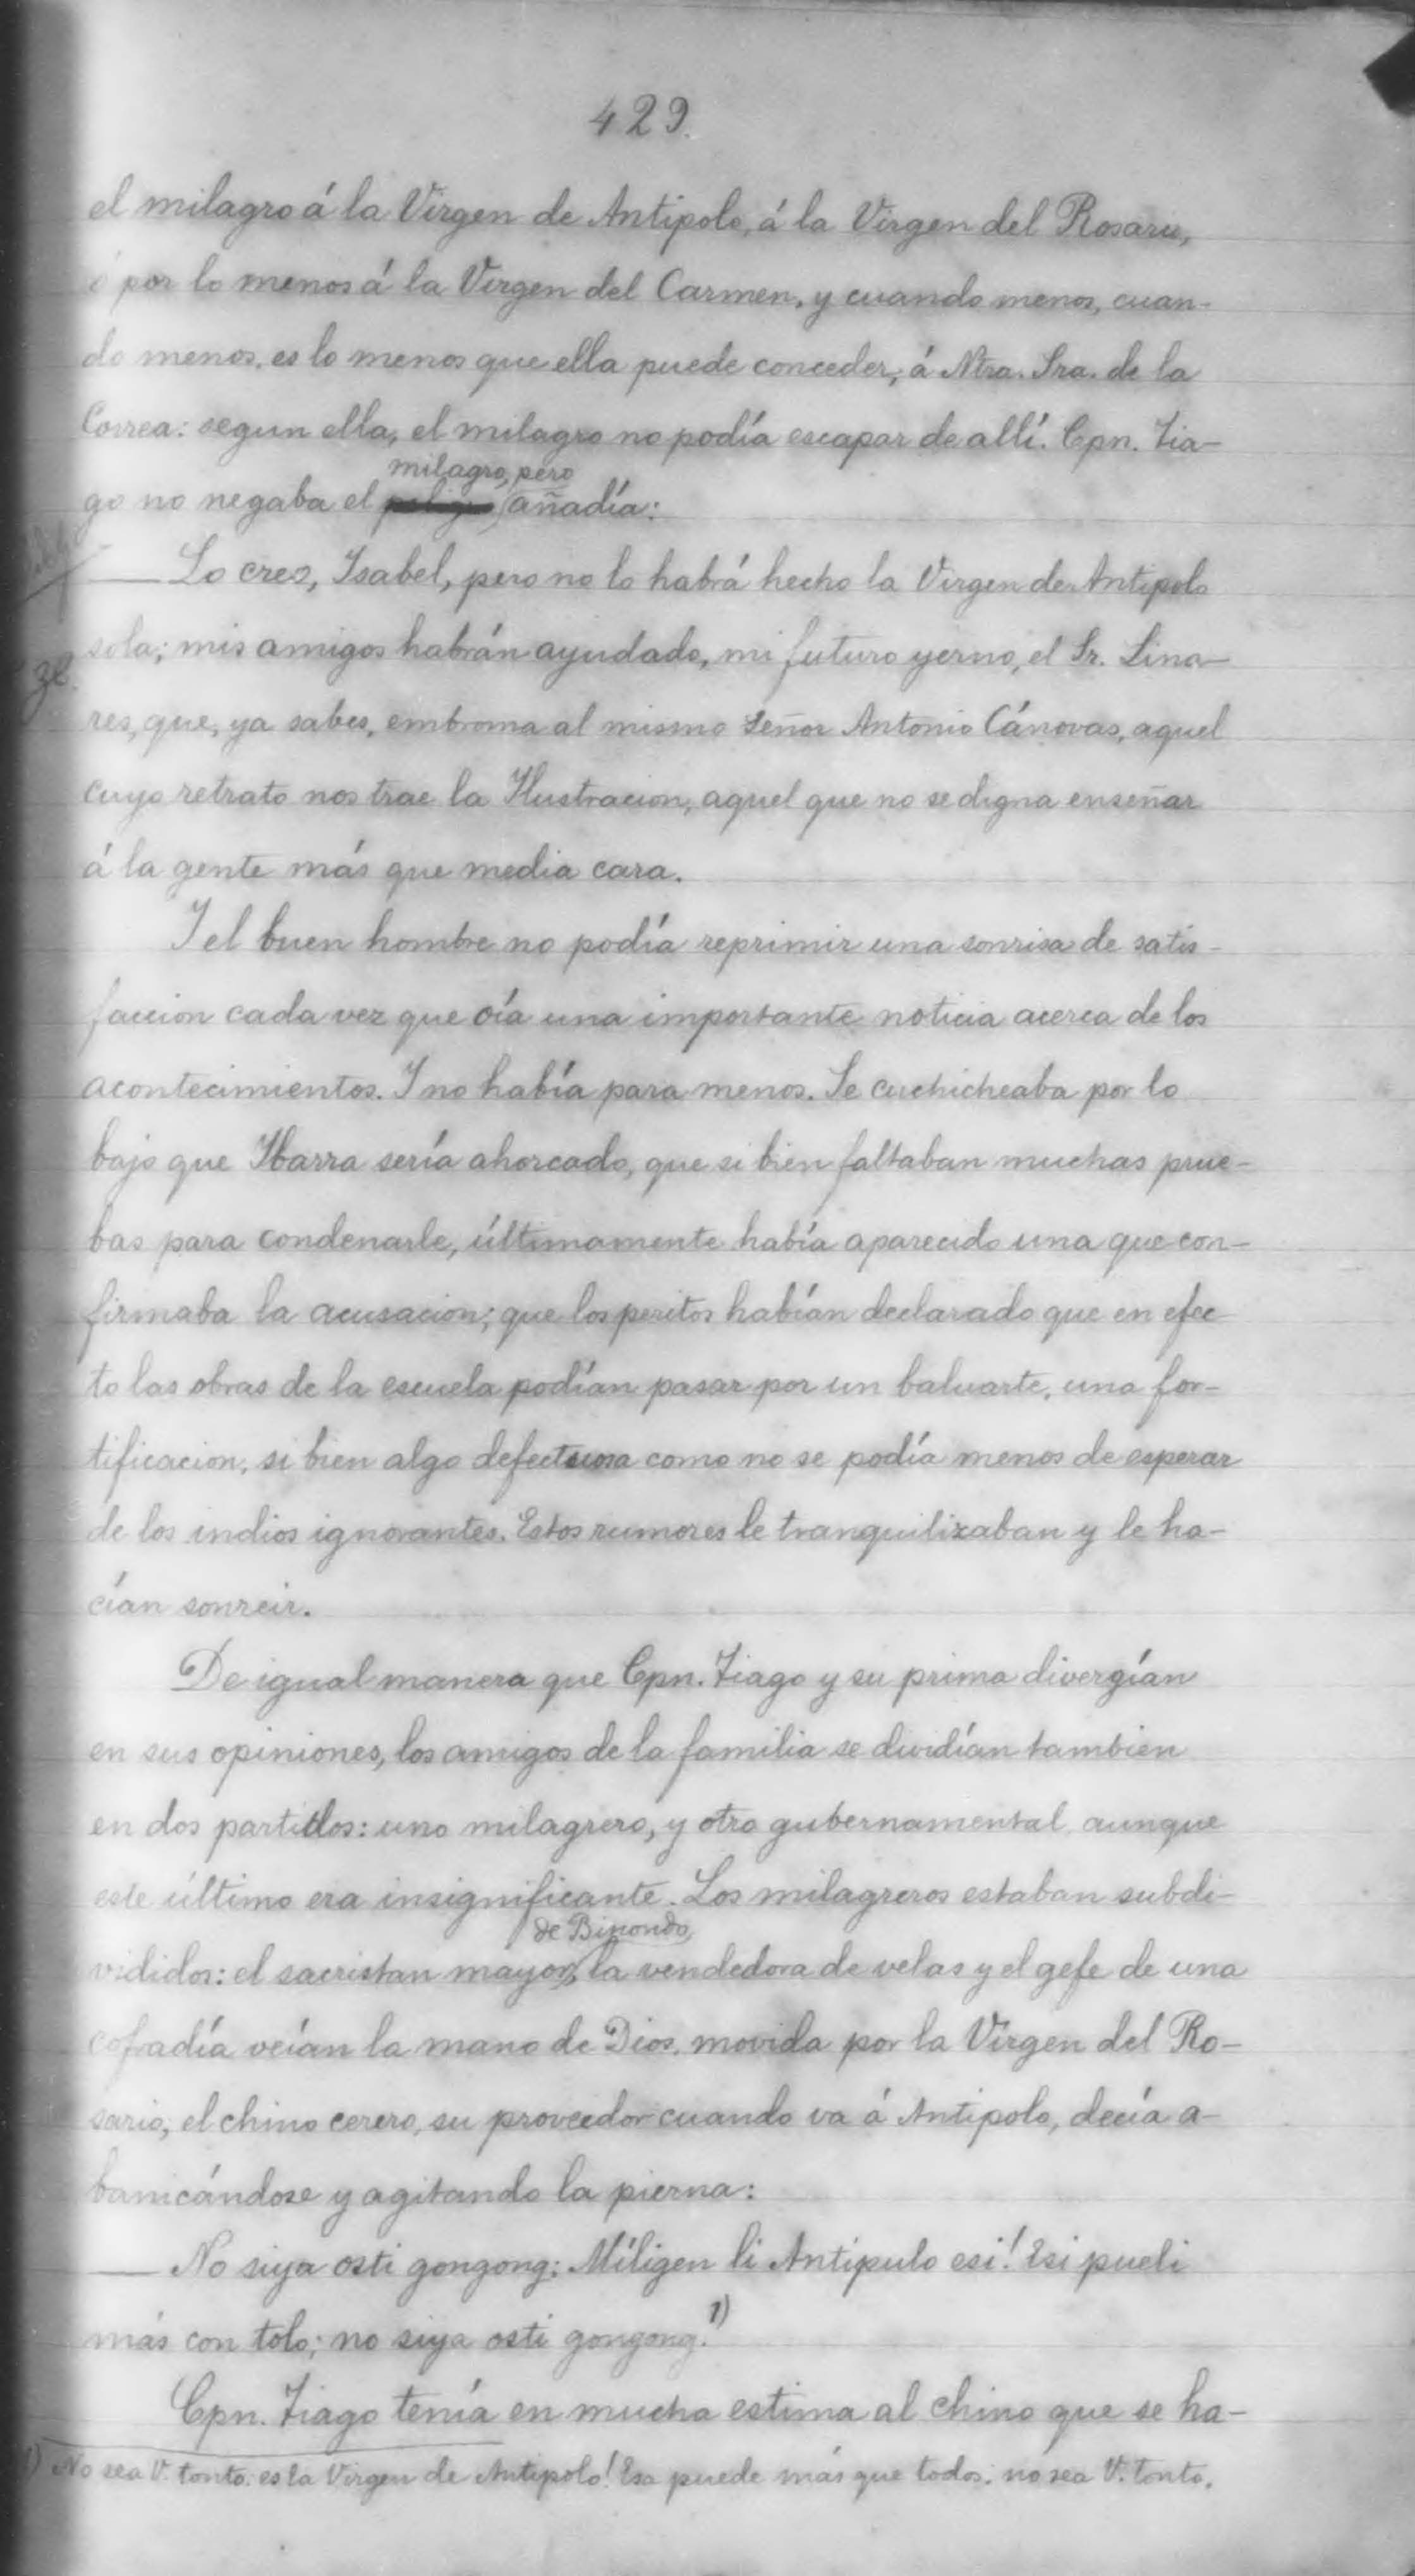 429.
el milagro á la Virgen de Antipolo, á la Virgen del Rosario,
ó por lo menos á la Virgen del Carmen, y cuando menos, cuan-
do menos, es lo menos que ella puede conceder, á Ntra. Sra. de la
Correa: segun ella, el milagro no podía escapar de allí. Cpn. Tia-
milagro, pero
go no negaba el añadía:
— Lo creo, Isabel, pero no lo habrá hecho la Virgen de Antipolo
sola; mis amigos habrán ayudado, mi futuro yerno, el Sr. Lina-
res, que, ya sabes, embroma al mismo Señor Antonio Cánovas, aquel
cuyo retrato nos trae la Ilustracion, aquel que no se digna enseñar
á la gente más que media cara.
Y el buen hombre no podía reprimir una sonrisa de satis-
faccion cada vez que oía una importante noticia acerca de los
acontecimientos. Y no había para menos. Se cuchicheaba por lo
bajo que Ibarra sería ahorcado, que si bien faltaban muchas prue-
bas para condenarle, últimamente había aparecido una que con-
firmaba la acusacion; que los peritos habían declarado que en efec-
to las obras de la escuela podían pasar por un baluarte, una for-
tificacion, si bien algo defectuosa como no se podía menos de esperar
de los indios ignorantes. Estos rumores le tranquilizaban y le ha-
cían sonreir.
De igual manera que Cpn. Tiago y su prima divergían
en sus opiniones, los amigos de la familia se dividían tambien
en dos partidos: uno milagrero, y otro gubernamental aunque
este último era insignificante. Los milagreros estaban subdi-
de Binondo,
vididos: el sacristan mayor, la vendedora de velas y el gefe de una
cofradía veían la mano de Dios, movida por la Virgen del Ro-
sario; el chino cerero, su proveedor cuando va á Antipolo, decía a-
banicándose y agitando la pierna:
— No siya osti gongong; Míligen li Antipulo esi! Esi pueli
más con tolo; no siya osti gongong. 1)
Cpn. Tiago tenía en mucha estima al chino que se ha-
1) No sea V. tonto; es la Virgen de Antipolo! Esa puede más que todos; no sea V. tonto.